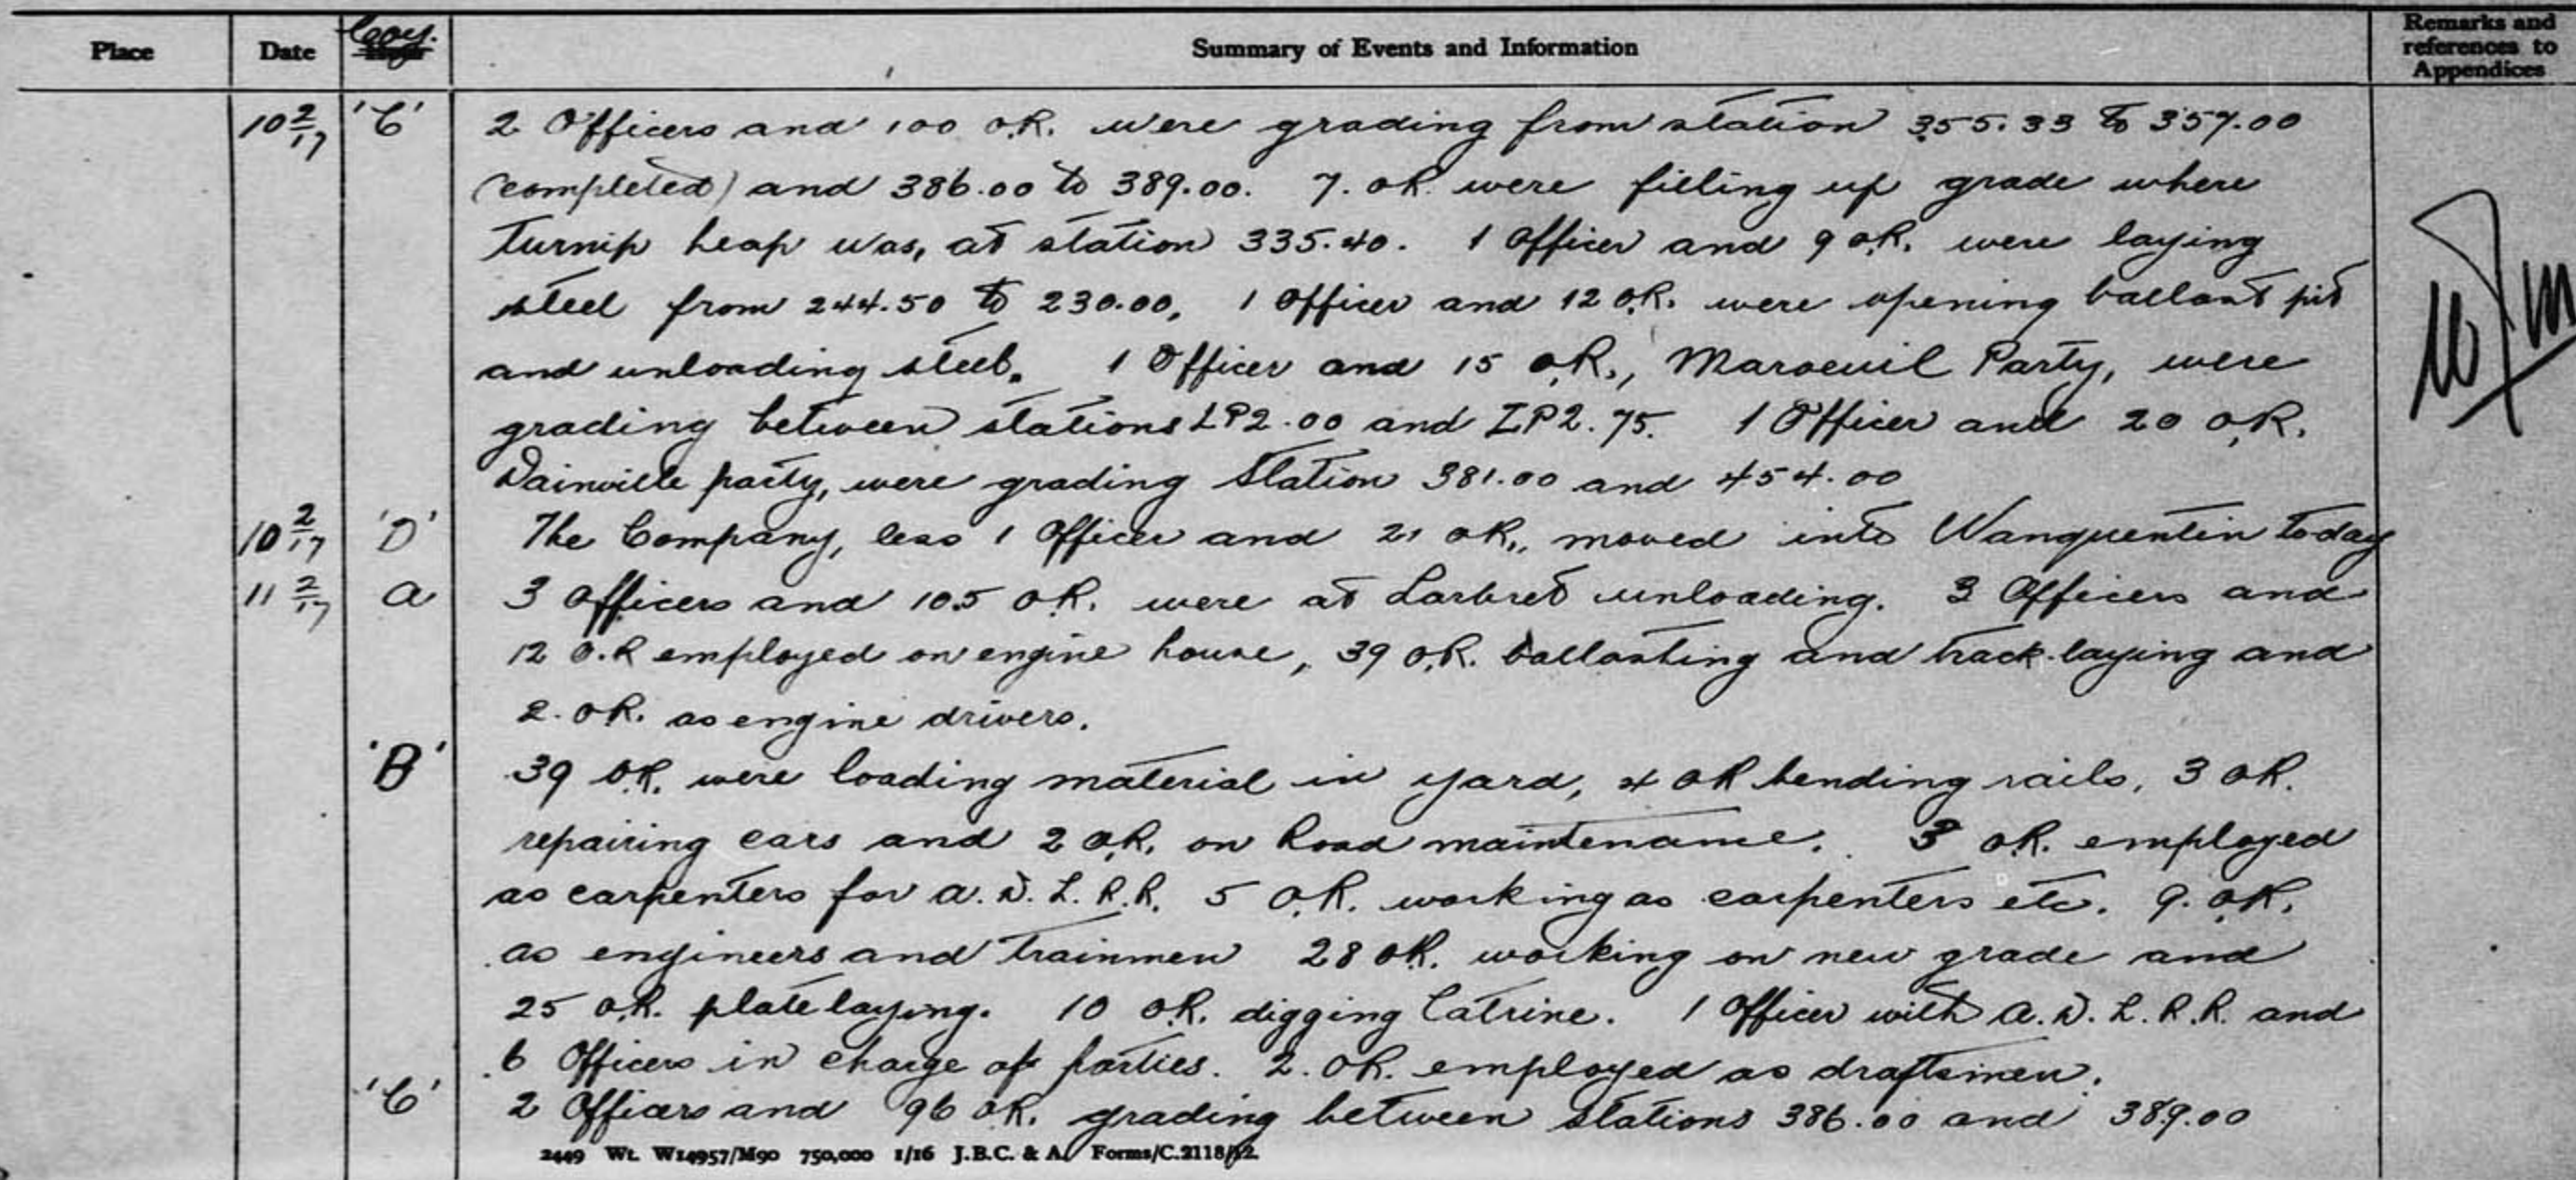 Place Date Coy. Hour Summary of Events and Information Remarks and references to Appendices
10 2/17 'C' 2 Officers and 100 O.R. were grading from station 355.33 to 357.00
(completed) and 386.00 to 389.00. 7. OR. were filling up grade where
turnip heap was, at station 335.40. 1 Officer and 9 O.R. were laying
steel from 244.50 to 230.00, 1 Officer and 12 O.R. were opening ballast pit
and unloading steel. 1 Officer and 15 O.R., Maroeuil Party, were
grading between stations LP2.00 and LP2.75. 1 Officer and 20 O.R.
Dainville party, were grading Station 381.00 and 454.00
10 2/17 'D' The Company, less 1 Officer and 21 OR., moved into Wanquentin to-day
11 2/17 A 3 Officers and 105 O.R. were at Larbret unloading. 3 Officers and
12 O.R employed on engine house, 39 O.R. ballasting and track-laying and
2. OR. as engine drivers.
'B' 39 O.R. were loading material in yard, 4 OR bending rails, 3 OR.
repairing cars and 2 O.R. on Road maintenance. 3 O.R. employed
as carpenters for A.D.L.R.R. 5 O.R. working as carpenters etc. 9. O.R.
as engineers and trainmen 28 OR. working on new grade and
25 O.R. plate laying. 10 O.R. digging latrine. 1 Officer with A.D.L.R.R. and
6 Officers in charge of parties. 2. OR. employed as draftsmen.
'C' 2 Officers and 96 O.R. grading between stations 386.00 and 389.00
2449 Wt. W14957/M90 750,000 1/16 J.B.C. & A. Forms/C.2118/12.